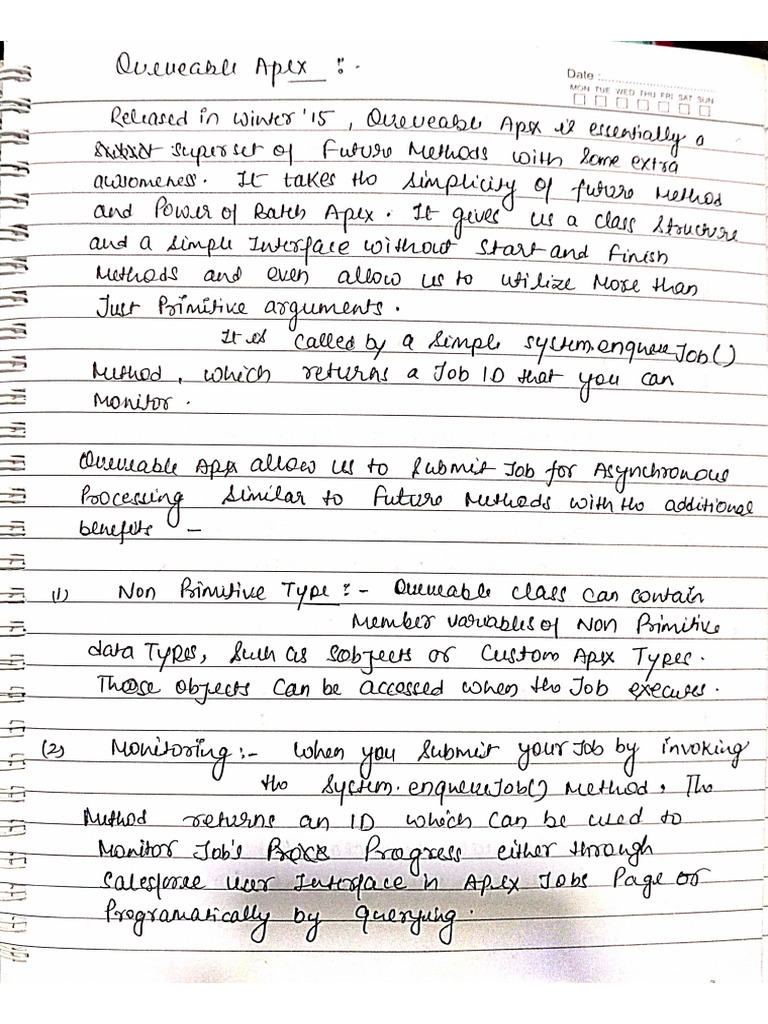 Queueable Apex :-
Date :
MON TUE WED THU FRI SAT SUN
Released in Winter'15, Queueable Apex is essentially a
superset of Future Methods with some extra
awsomeness. It takes the simplicity of future Method
and Power of Batch Apex. It gives us a class structure
and a simple Interface without start and Finish
Methods and even allow us to utilize More than
Just Primitive arguments.
It is called by a simple system.enqueueJob()
Method, which returns a Job ID that you can
Monitor.
Queueable Apex allow us to submit Job for Asynchronous
Processing similar to Future Methods with the additional
benefits -
(1) Non Primitive Type :- Queueable class can contain
Member variables of Non Primitive
data Types, such as sobjects or custom Apex Types.
Those objects can be accessed when the Job executes.
(2) Monitoring :- When you submit your Job by invoking
the System.enqueueJob() Method, The
Method returns an ID which can be used to
Monitor Job's Progress either through
salesforce user Interface in Apex Jobs Page or
Programatically by querying.